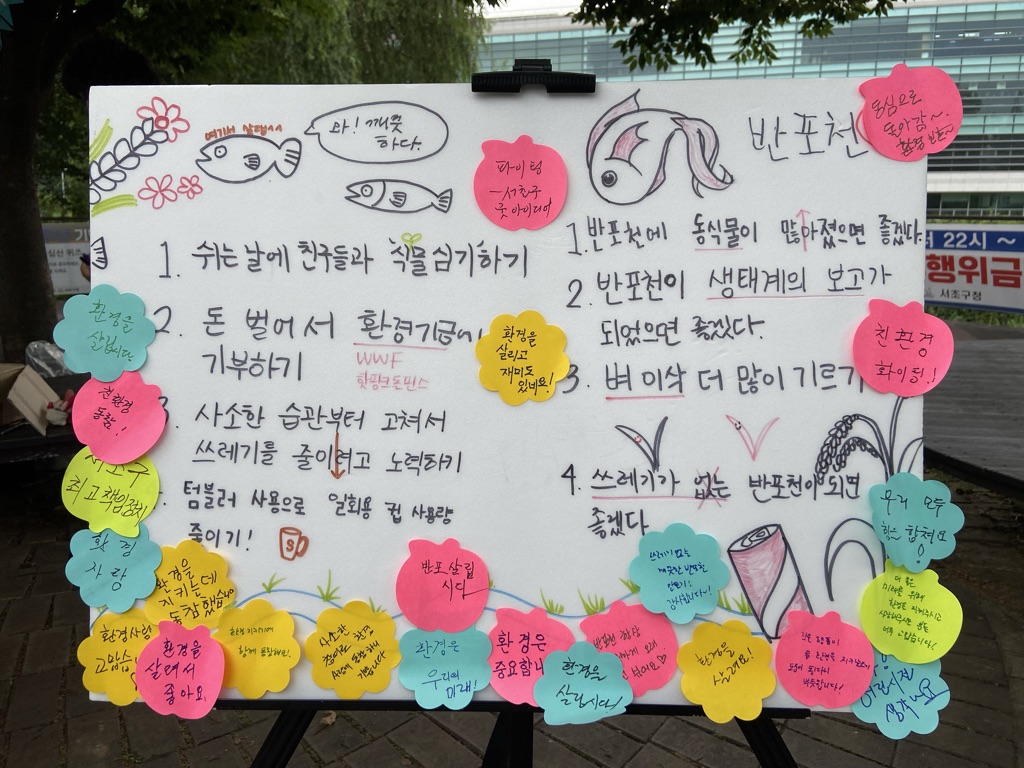 여기서 살렵^^
와! 깨끗
하다.
1. 쉬는 날에 친구들과 식물 심기하기
2. 돈 벌어서 환경기금에
기부하기
WWF
핫핑크돌핀스
3. 사소한 습관부터 고쳐서
쓰레기를 줄이려고 노력하기
텀블러 사용으로 일회용 컵 사용량
줄이기!
S
파이팅
-서초구
굿 아이디어
환경을
살리고
재미도
있네요!
반포천
동심으로
돌아감~
환경 보호~
1. 반포천에 동식물이 많아졌으면 좋겠다.
2. 반포천이 생태계의 보고가
되었으면 좋겠다.
3. 벼 이삭 더 많이 기르기
4. 쓰레기가 없는 반포천이 되면
좋겠다
친환경
화이팅!
22시 ~
행위금
서초구청
환경을
살립시다
친환경
동참!
서초구
최고 책임정치
환경
사랑
환경을
지키는데
동참했습니다
환경사랑
고맙습
환경을
살려서
좋아요
환경지키기에
함께 동참해요!
사소한
환경
반포 살립
시다
환경은
우리의
미래!
환경은
중요합니
환경을
살립시다!
쓰레기 없는
깨끗한 반포천
감사합니다~!
환경을
살려요!
우리 모두
힘을 합쳐요
더 나은
미래를 위해
환경을 지켜주시고
너무 고맙습니다!
어린시절
생각나요